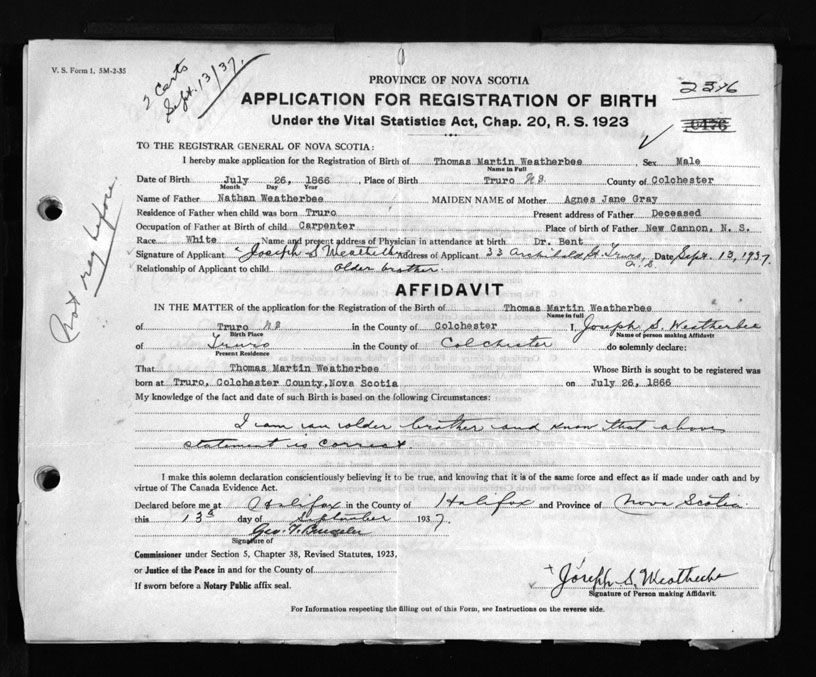 V. S. Form 1. 5M-2-35
2 Certs
Sept. 13/37.
PROVINCE OF NOVA SCOTIA
APPLICATION FOR REGISTRATION OF BIRTH
Under the Vital Statistics Act, Chap. 20, R. S. 1923
TO THE REGISTRAR GENERAL OF NOVA SCOTIA:
I hereby make application for the Registration of Birth of Thomas Martin Weatherbee, Sex Male
Name in Full
Date of Birth July 26, 1866, Place of Birth Truro County of Colchester
Month Day Year
Name of Father Nathan Weatherbee MAIDEN NAME of Mother Agnes Jane Gray
Residence of Father when child was born Truro Present address of Father Deceased
Occupation of Father at Birth of child Carpenter Place of birth of Father New Cannon, N. S.
Race White Name and present address of Physician in attendance at birth Dr. Bent
Signature of Applicant Joseph S Weatherbee Address of Applicant 33 Archibald St. Truro, Date Sept. 13, 1937.
Relationship of Applicant to child older brother
Not reg before.
AFFIDAVIT
IN THE MATTER of the application for the Registration of the Birth of Thomas Martin Weatherbee
Name in full
of Truro in the County of Colchester I, Joseph S. Weatherbee
Birth Place Name of person making Affidavit
of Truro in the County of Colchester do solemnly declare:
Present Residence
That Thomas Martin Weatherbee Whose Birth is sought to be registered was
born at Truro, Colchester County, Nova Scotia on July 26, 1866
My knowledge of the fact and date of such Birth is based on the following Circumstances:
I am an older brother and know that above
statement is correct.
I make this solemn declaration conscientiously believing it to be true, and knowing that it is of the same force and effect as if made under oath and by
virtue of The Canada Evidence Act.
Declared before me at Halifax in the County of Halifax and Province of Nova Scotia
this 13th day of September 1937.
Signature of
Commissioner under Section 5, Chapter 38, Revised Statutes, 1923,
or Justice of the Peace in and for the County of
If sworn before a Notary Public affix seal.
Joseph S. Weatherbee
Signature of Person making Affidavit.
For Information respecting the filling out of this Form, see Instructions on the reverse side.